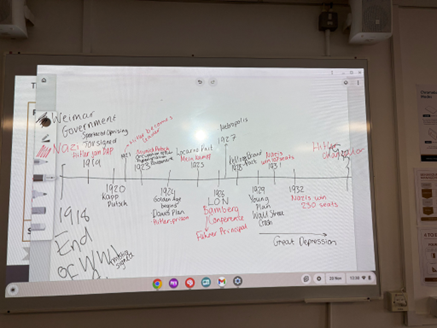 Weimar
Government
Nazi
Spartacist Uprising
ToV signed
Hitler join DAP
1919
1918
End
of WW1
1920
Kapp
Putsch
1921
Hitler becomes
leader
Munich Putsch
1923
1924
Golden Age
begins
Dawes Plan
Hitler prison
Locarno Pact
Mein Kampf
1925
1926
LON
Bamberg
Conference
Fuhrer Principal
Metropolis
1927
1928
1929
Young
Plan
Wall Street
Crash
Nazis
1931
1932
Nazis win
230 seats
Great Depression
Hitler
Chancellor